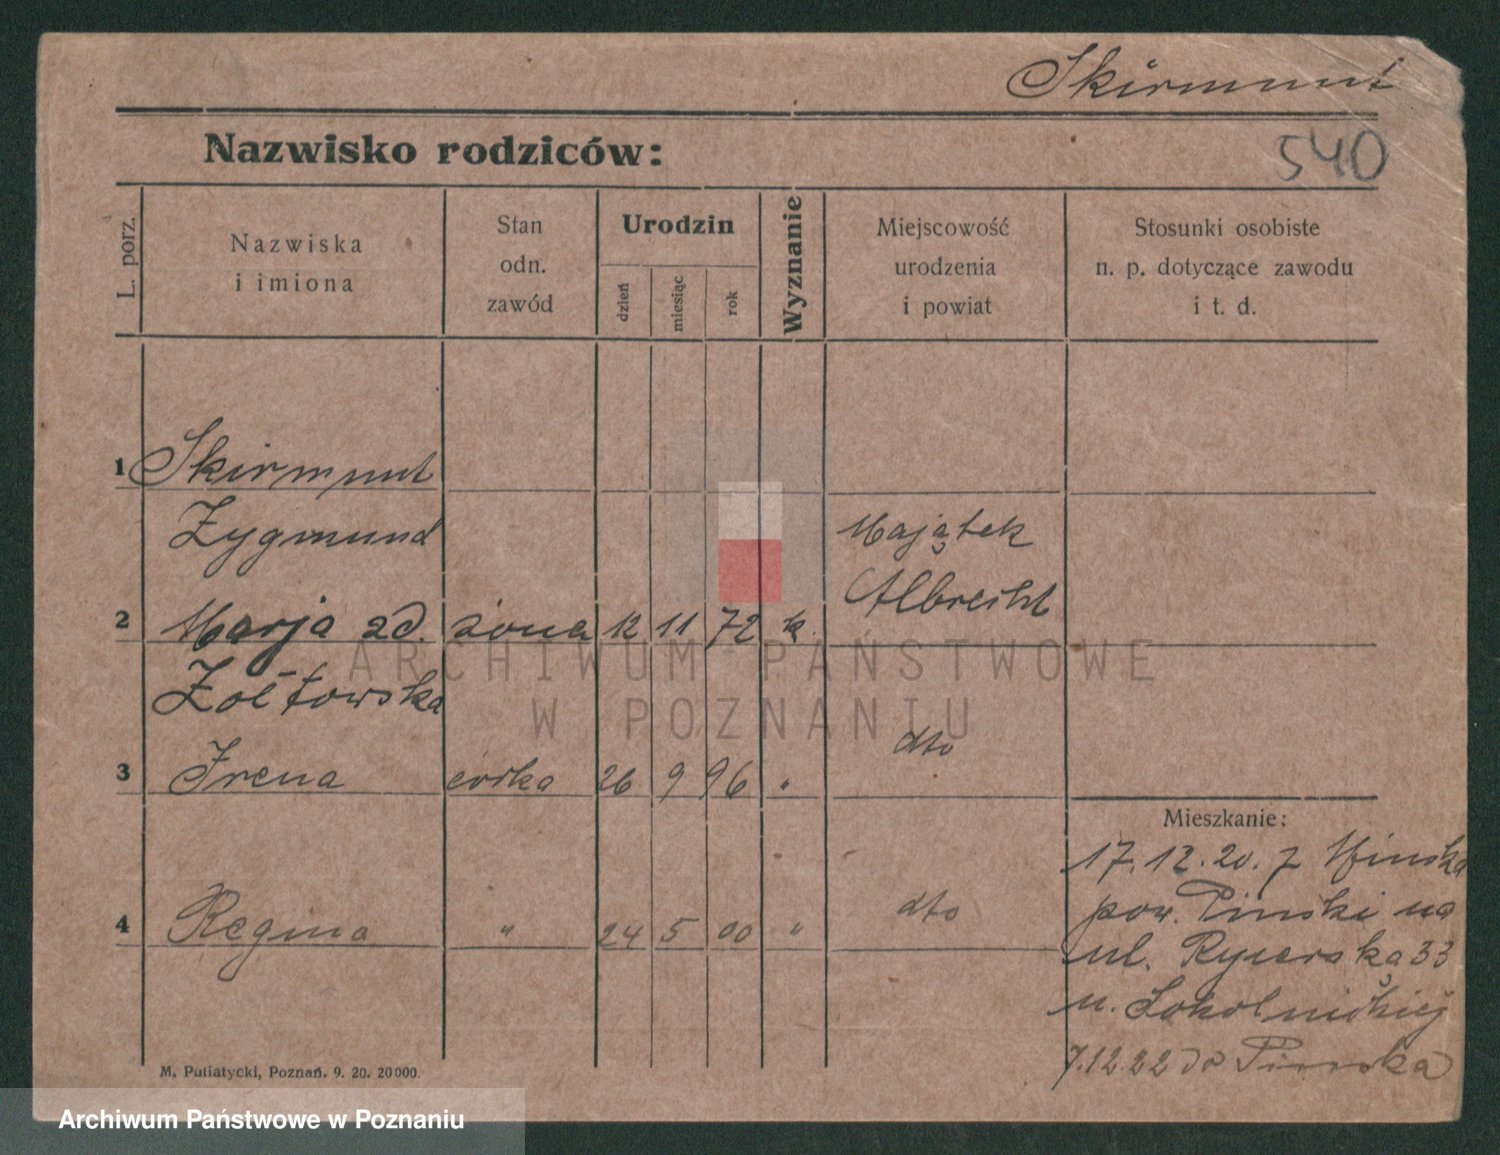 Skirmunt
Nazwisko rodziców:
540
L. porz.
Nazwiska
i imiona
Stan
odn.
zawód
Urodzin
dzień
miesiąc
rok
Wyznanie
Miejscowość
urodzenia
i powiat
Stosunki osobiste
n. p. dotyczące zawodu
i t. d.
1 Skirmunt
Zygmund
Majątek
Albrecht
2 Marja zd. żona 12 11 72 k.
Żółtowska
dto
3 Irena córka 26 9 96 "
Mieszkanie:
17.12.20. z Mińska
pow. Pinski na
4 Regina " 24 5 00 " dto
ul. Rycerską 33
u. Sokolnickiej
7.12.22 do Pinska
M. Putiatycki, Poznań. 9. 20. 20000.
ARCHIWUM PAŃSTWOWE
W POZNANIU
Archiwum Państwowe w Poznaniu